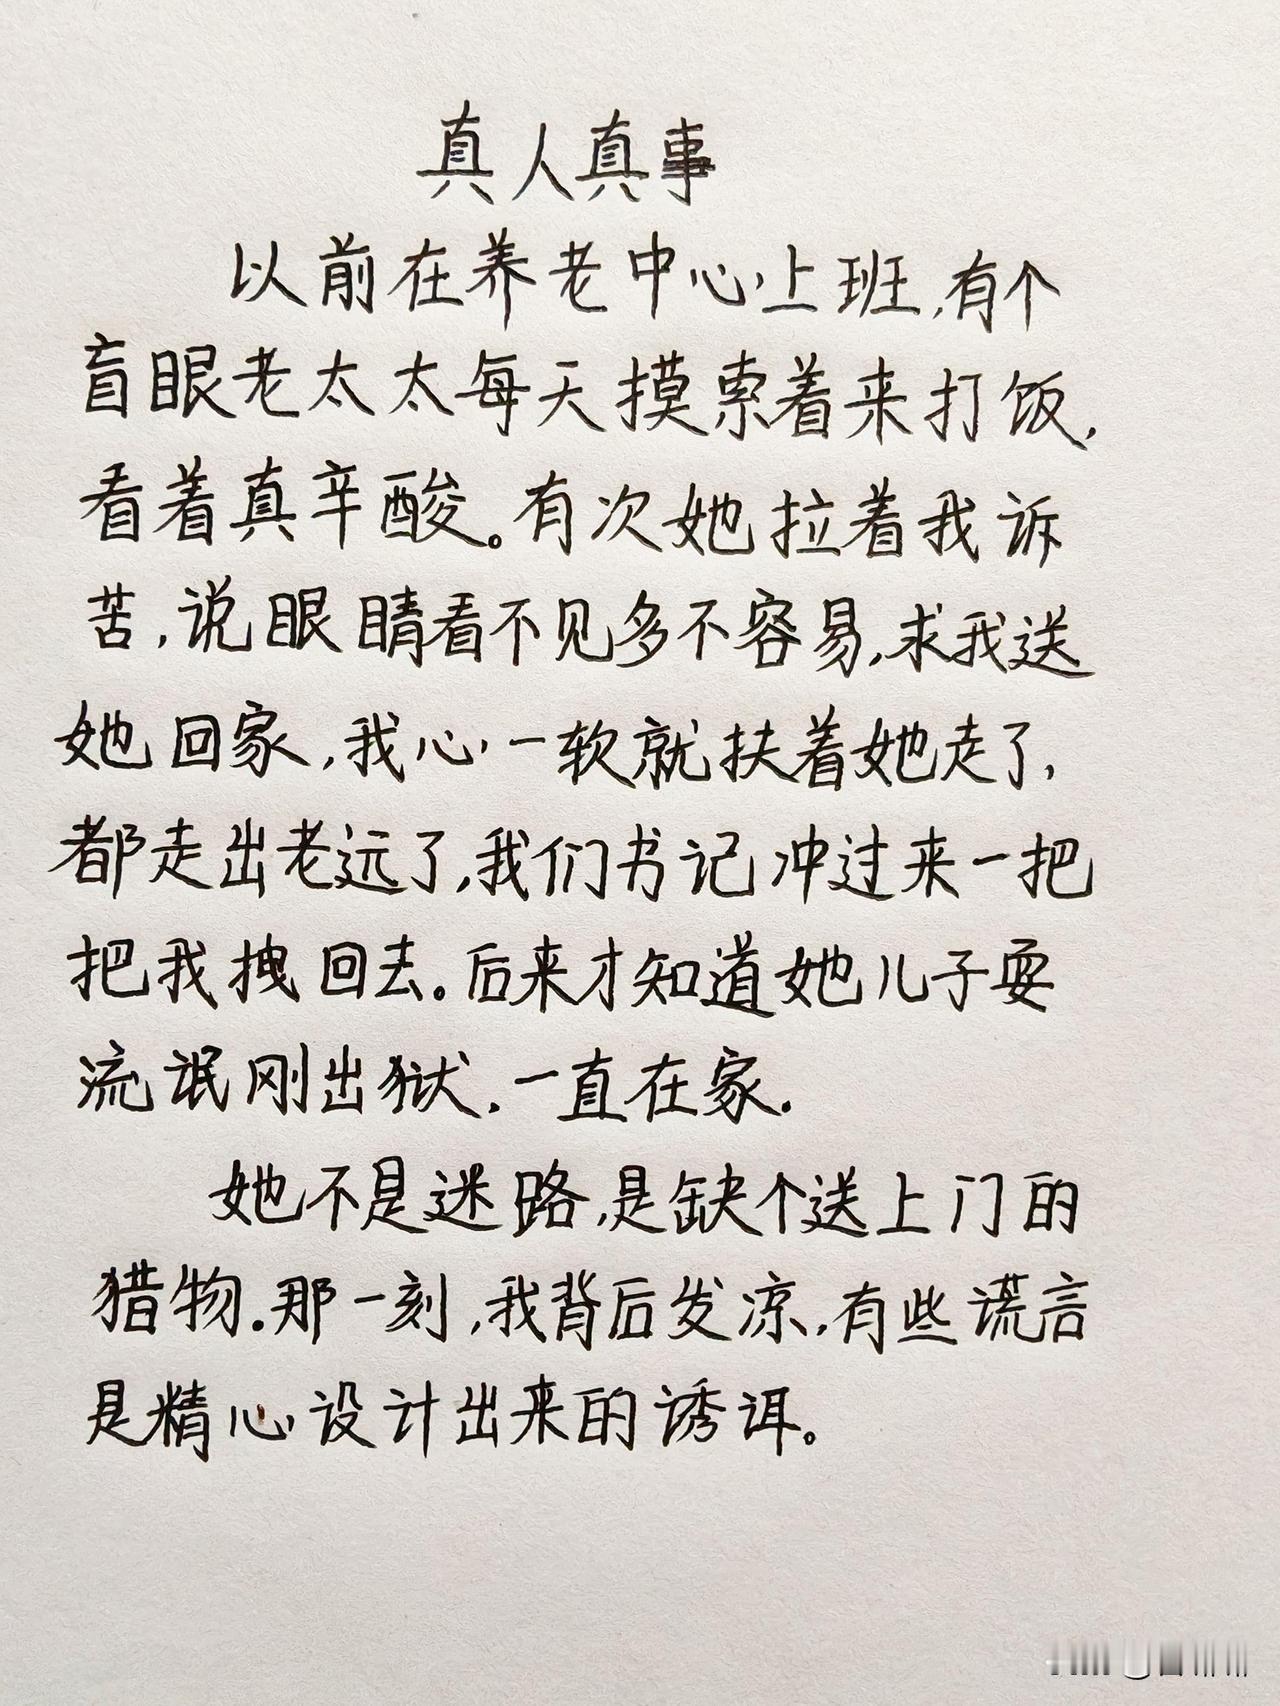 真人真事
以前在养老中心上班,有个
盲眼老太太每天摸索着来打饭,
看着真辛酸。有次她拉着我诉
苦,说眼睛看不见多不容易,求我送
她回家,我心一软就扶着她走了,
都走出老远了,我们书记冲过来一把
把我拽回去。后来才知道她儿子耍
流氓刚出狱,一直在家.
她不是迷路,是缺个送上门的
猎物.那一刻,我背后发凉,有些谎言
是精心设计出来的诱饵。